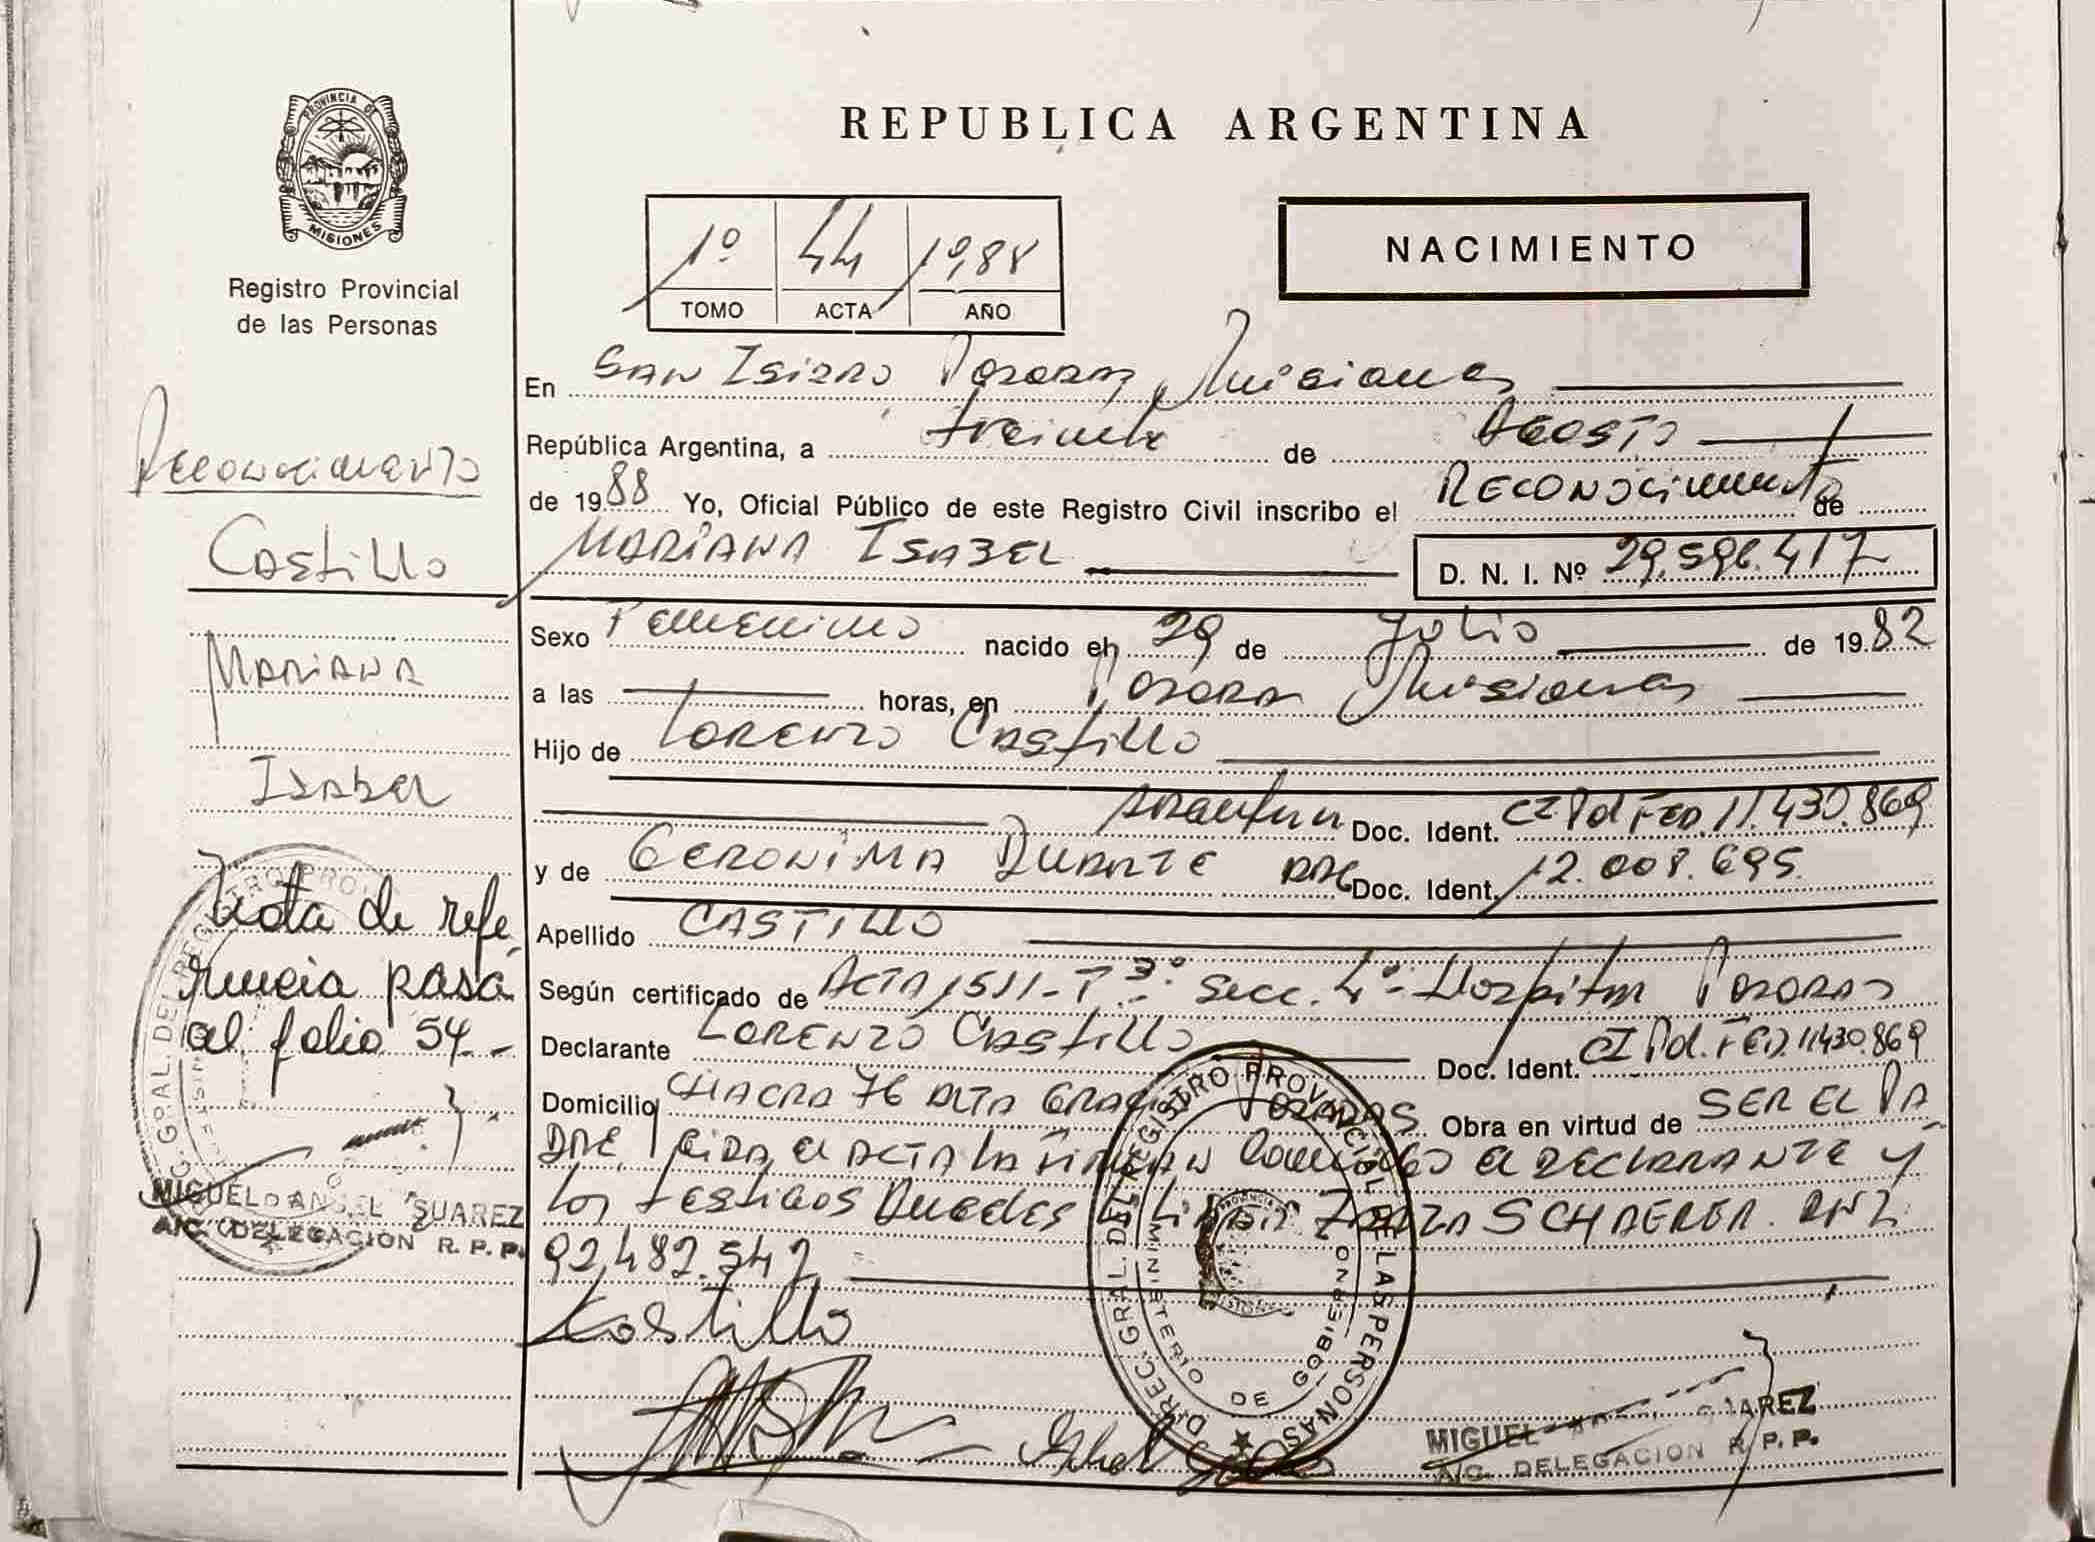 PROVINCIA DE
MISIONES
Registro Provincial
de las Personas
REPUBLICA ARGENTINA
1º 44 1988
TOMO ACTA AÑO
NACIMIENTO
En San Isidro Posadas, Misiones
República Argentina, a treinta de Agosto
de 1988 Yo, Oficial Público de este Registro Civil inscribo el Reconocimiento de
MARIANA ISABEL D. N. I. Nº 29.596.417
Sexo Femenino nacido el 29 de Julio de 1982
a las horas, en Posadas Misiones
Hijo de Lorenzo Castillo
Doc. Ident. CI Pol Fed. 11.430.869
y de GERONIMA DUARTE Doc. Ident. 12.008.695
Apellido CASTILLO
Según certificado de Acta 1511-Tº 3º Secc. 4º- Hospital Posadas
Declarante Lorenzo Castillo Doc. Ident. CI Pol. Fed. 11430.869
Domicilio CHACRA 76 ALTA GRACIA POSADAS Obra en virtud de SER EL PA
DRE, leida el ACTA LA FIRMAN el DECLARANTE y
los testigos SCHAERER. DNI
92,482.547
Castillo
Reconocimiento
Castillo
MARIANA
Isabel
Nota de refe
rencia pasa
al folio 54.-
MIGUEL ANGEL SUAREZ
A/C. DELEGACION R. P. P.
DIREC. GRAL. DEL REGISTRO PROVINCIAL DE LAS PERSONAS
MINISTERIO DE GOBIERNO
MIGUEL SUAREZ
A/C. DELEGACION R. P. P.